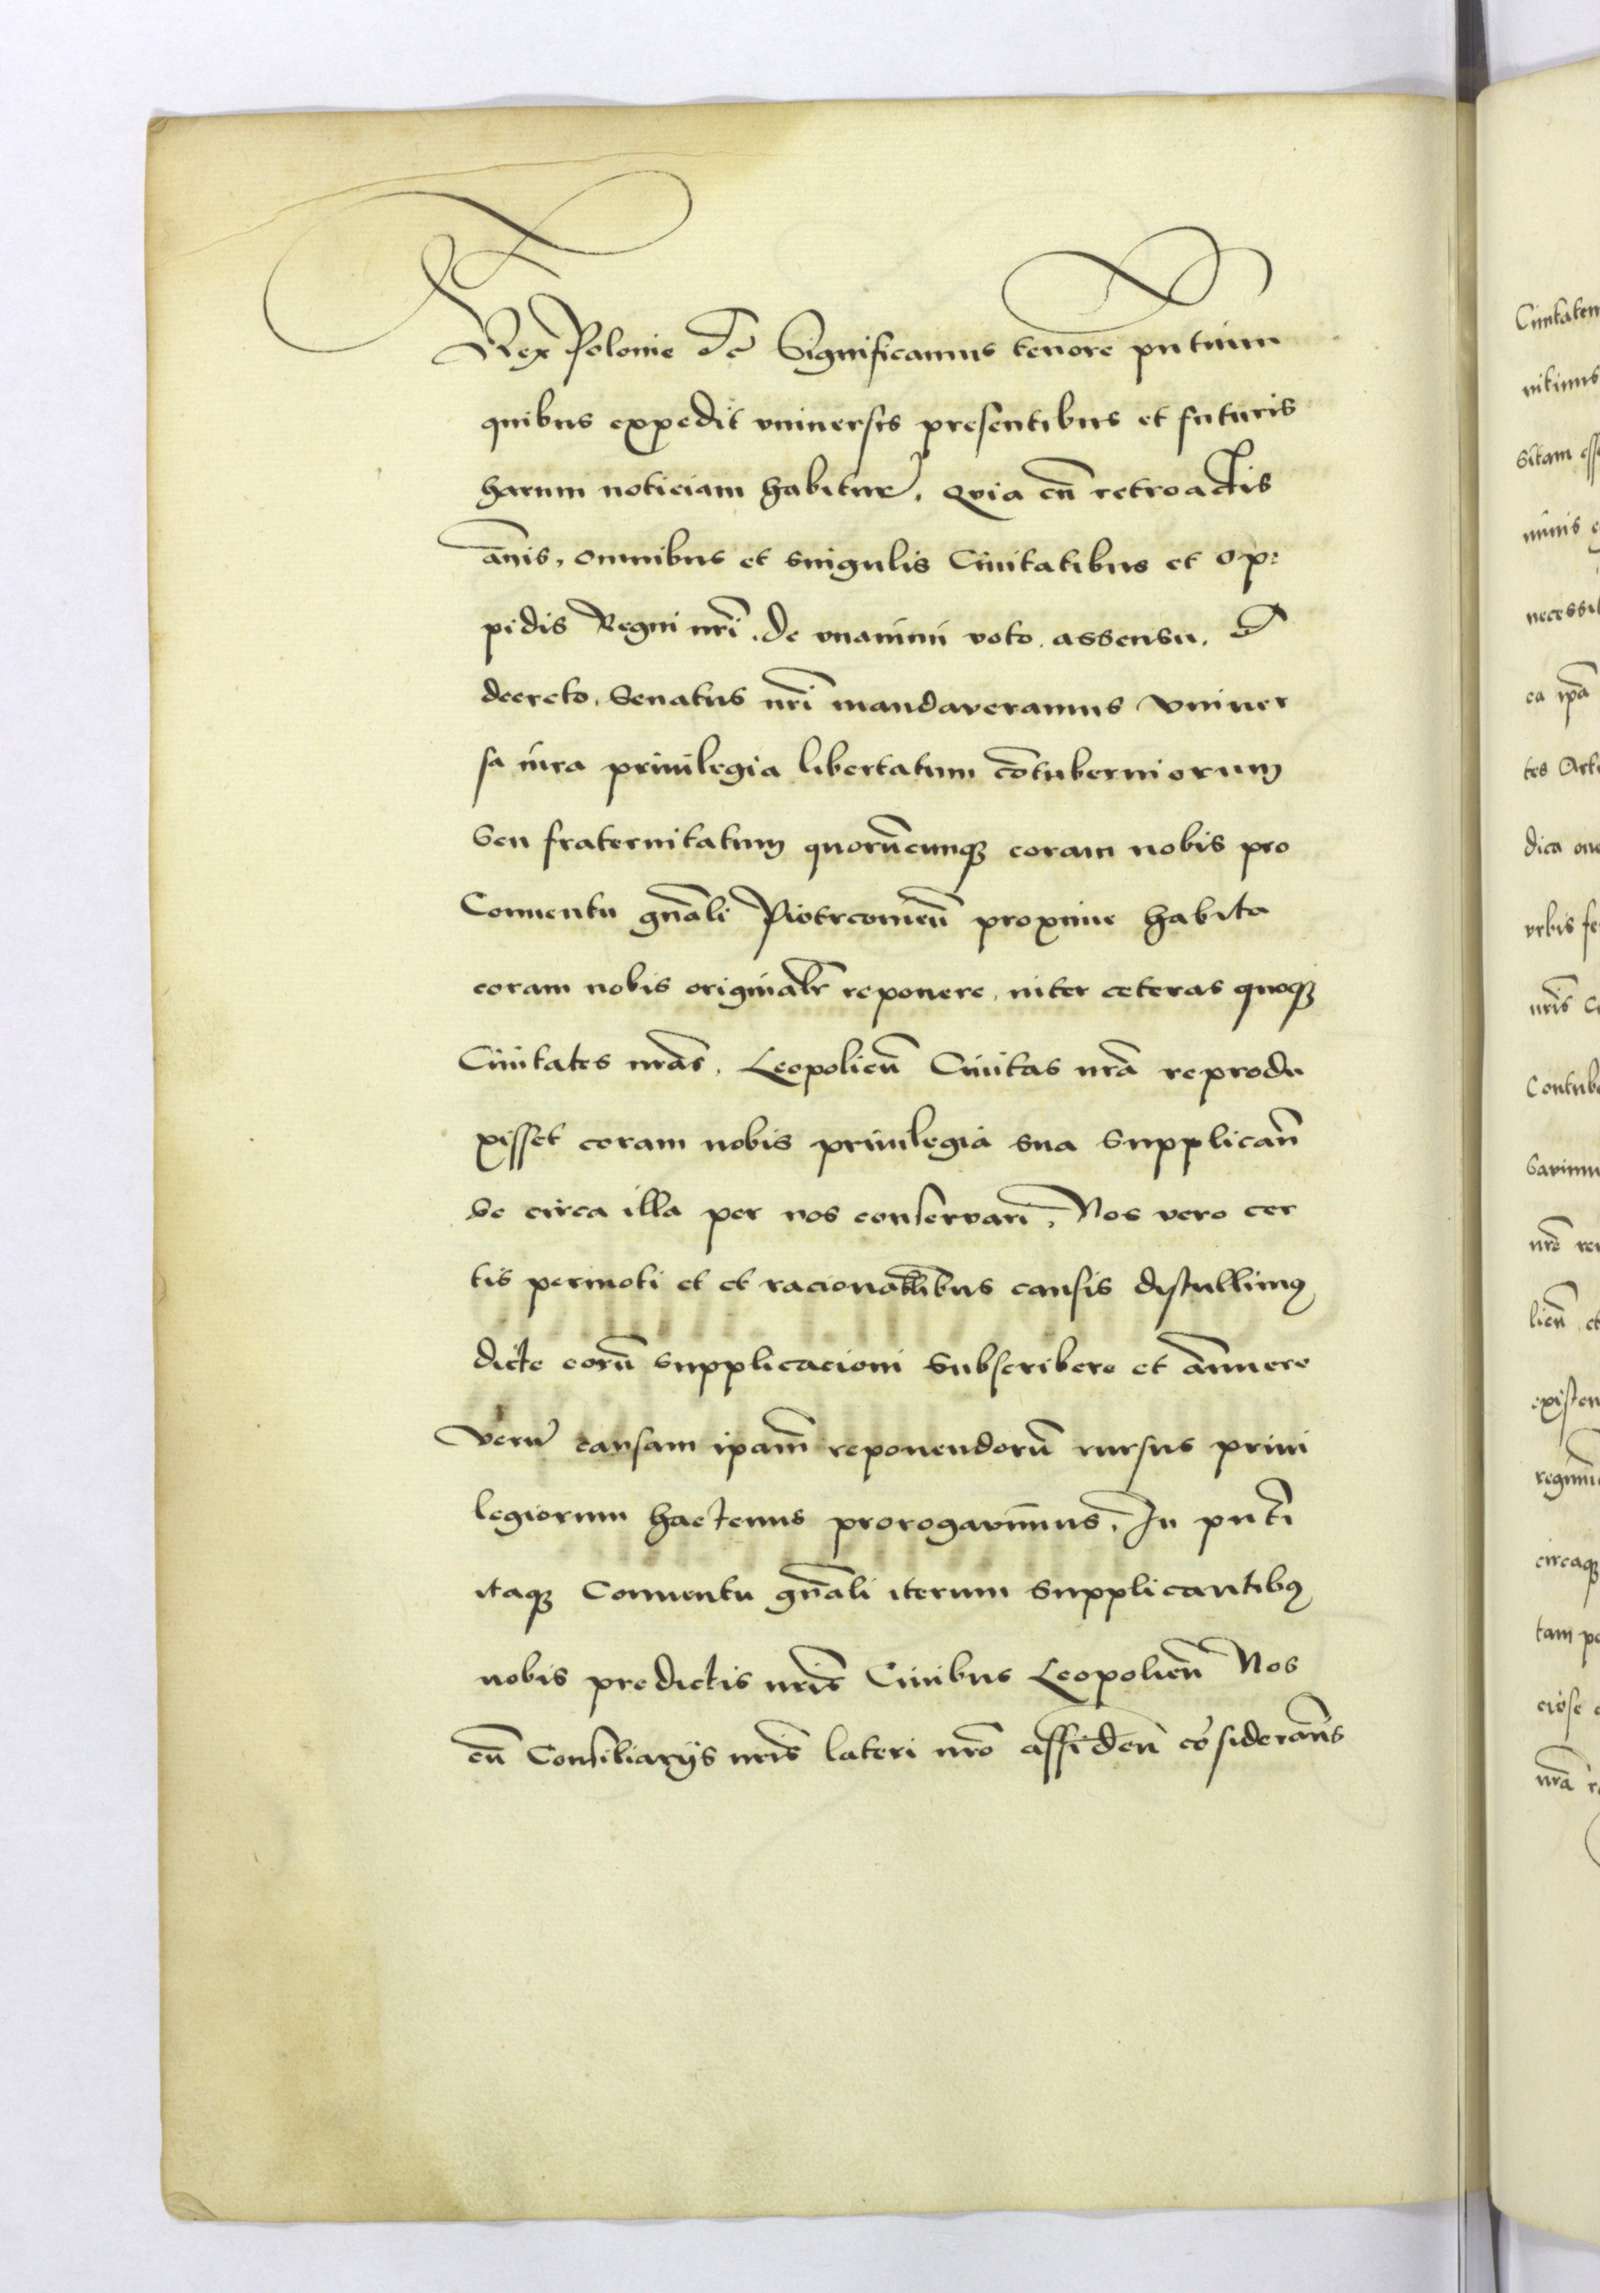 Rex Polonie etc Significamus tenore pñtium
quibus expedit vniuersis presentibus et futuris
harum noticiam habitur̃. Qvia cũ retroactis
añis, omnibus et singulis Ciuitatibus et op:
pidis Regni nri̅. de vnanimi voto. assensu. et
decreto. Senatus nri̅ mandaveramus vniuer
sa iura priuilegia libertatum co̅tuberniorum
Seu fraternitatum quoru̅cunqꝫ coram nobis pro
Conuentu gña̅li Piotrcouieñ proxime habito
coram nobis originalr̃ reponere, inter ceteras quoqꝫ
Ciuitates nra̅s. Leopolieñ Ciuitas nra̅ reprodu
xisset coram nobis priuilegia sua Supplicañ
Se circa illa per nos conservari, Nos vero cer
tis permoti et et racionabilibus causis distullimꝰ
dicte eoru̅ supplicacioni Subscribere et añuere
Veru̅ causam ipam̅ reponendoru̅ rursus priui
legiorum hactenus prorogavimus. In pñti
itaqꝫ Conuentu gña̅li iterum Supplicantibꝰ
nobis predictis nris̅ Ciuibus Leopolieñ Nos
cu̅ Consiliarijs nris̅ lateri nro̅ assideñ co̅siderañs
Ciuitatem
sitam esse
ea ipa̅
dica
nris̅
nre̅
lieñ et
circaqꝫ
tam
nra̅